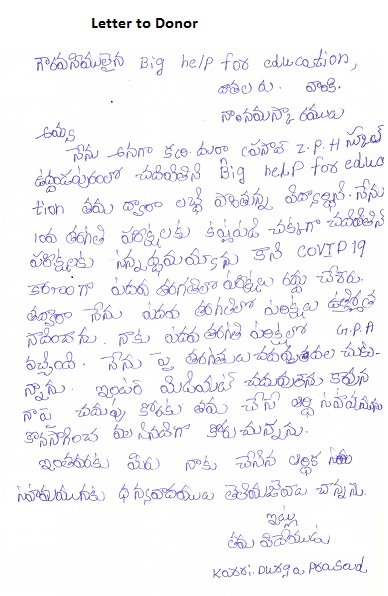 Letter to Donor
గౌరవనీయులైన Big help for education,
దాతలకు. వారికి.
నా నమస్కారములు
అయ్యా
నేను అనగా కర్రి. దుర్గా ప్రసాద్ Z.P.H స్కూల్
ఉద్దండపురంలో చదివితిని Big help for educa
tion తమ ద్వారా లబ్ధి పొందుతున్న విద్యార్థిని. నేను
10వ తరగతి పరీక్షలకు కష్టపడి చక్కగా చదివితిని
పరీక్షలకు కాని COVIP19
కారణంగా పదవ తరగతిలో పరీక్షలు రద్దు చేశారు.
తద్వారా నేను పదవ తరగతిలో పరీక్షలు ఉత్తీర్ణత
సాధించాను. నాకు పదవ తరగతి పరీక్షలో G.P.A
వచ్చింది. నేను పై తరగతులు చదువుదలచుకు-
న్నాను. ఇంటర్ మీడియట్ చదువుతాను కావున
నాపై చదువు కొరకు తమ చేసే ఆర్థిక సహాయమును
కొనసాగించ మనవిగా కోరుచున్నాను.
ఇంతవరకు మీరు నాకు చేసిన ఆర్థిక
సహాయమునకు ధన్యవాదములు తెలియజేయుచున్నాను.
ఇట్లు
తమ విధేయుడు
Karri. Durga Prasad